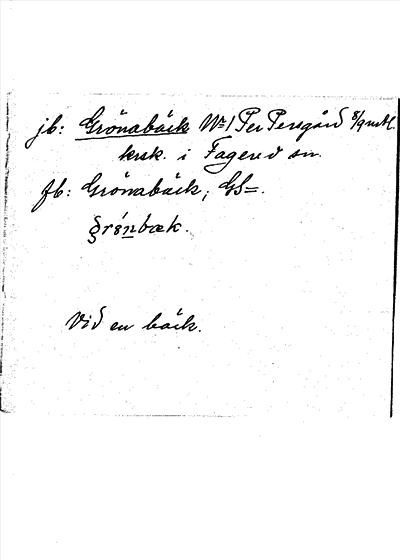 jb: Grönabäck Nr 1 Per Persgård 8/9 mtl.
krsk. i Fagered sn.
fb: Grönabäck, GS=.
Vid en bäck.